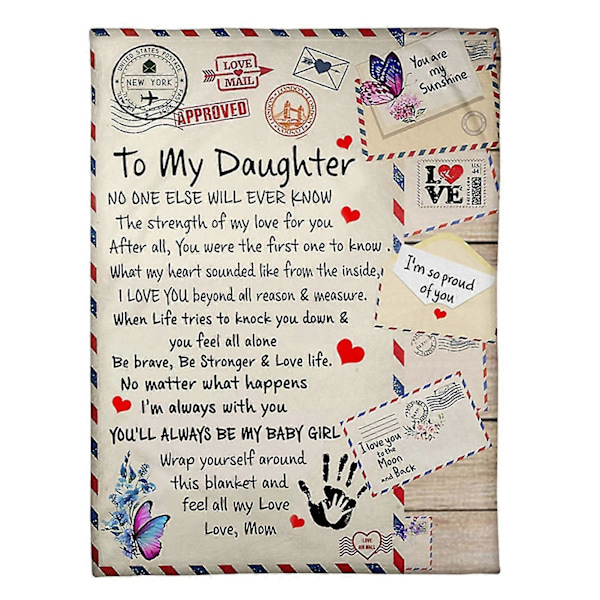 UNITED STATES POSTAGE
NEW YORK
LOVE
MAIL
APPROVED
LONDON
You are
my
Sunshine
To My Daughter
LOVE
NO ONE ELSE WILL EVER KNOW
The strength of my love for you
After all, You were the first one to know .
What my heart sounded like from the inside,
I LOVE YOU beyond all reason & measure.
I'm so proud
of you
When Life tries to knock you down &
you feel all alone
Be brave, Be Stronger & Love life.
No matter what happens
I'm always with you
YOU'LL ALWAYS BE MY BABY GIRL
I love you
to the
Moon
and Back
Wrap yourself around
this blanket and
feel all my Love
Love, Mom
LOVE
AIR MAIL